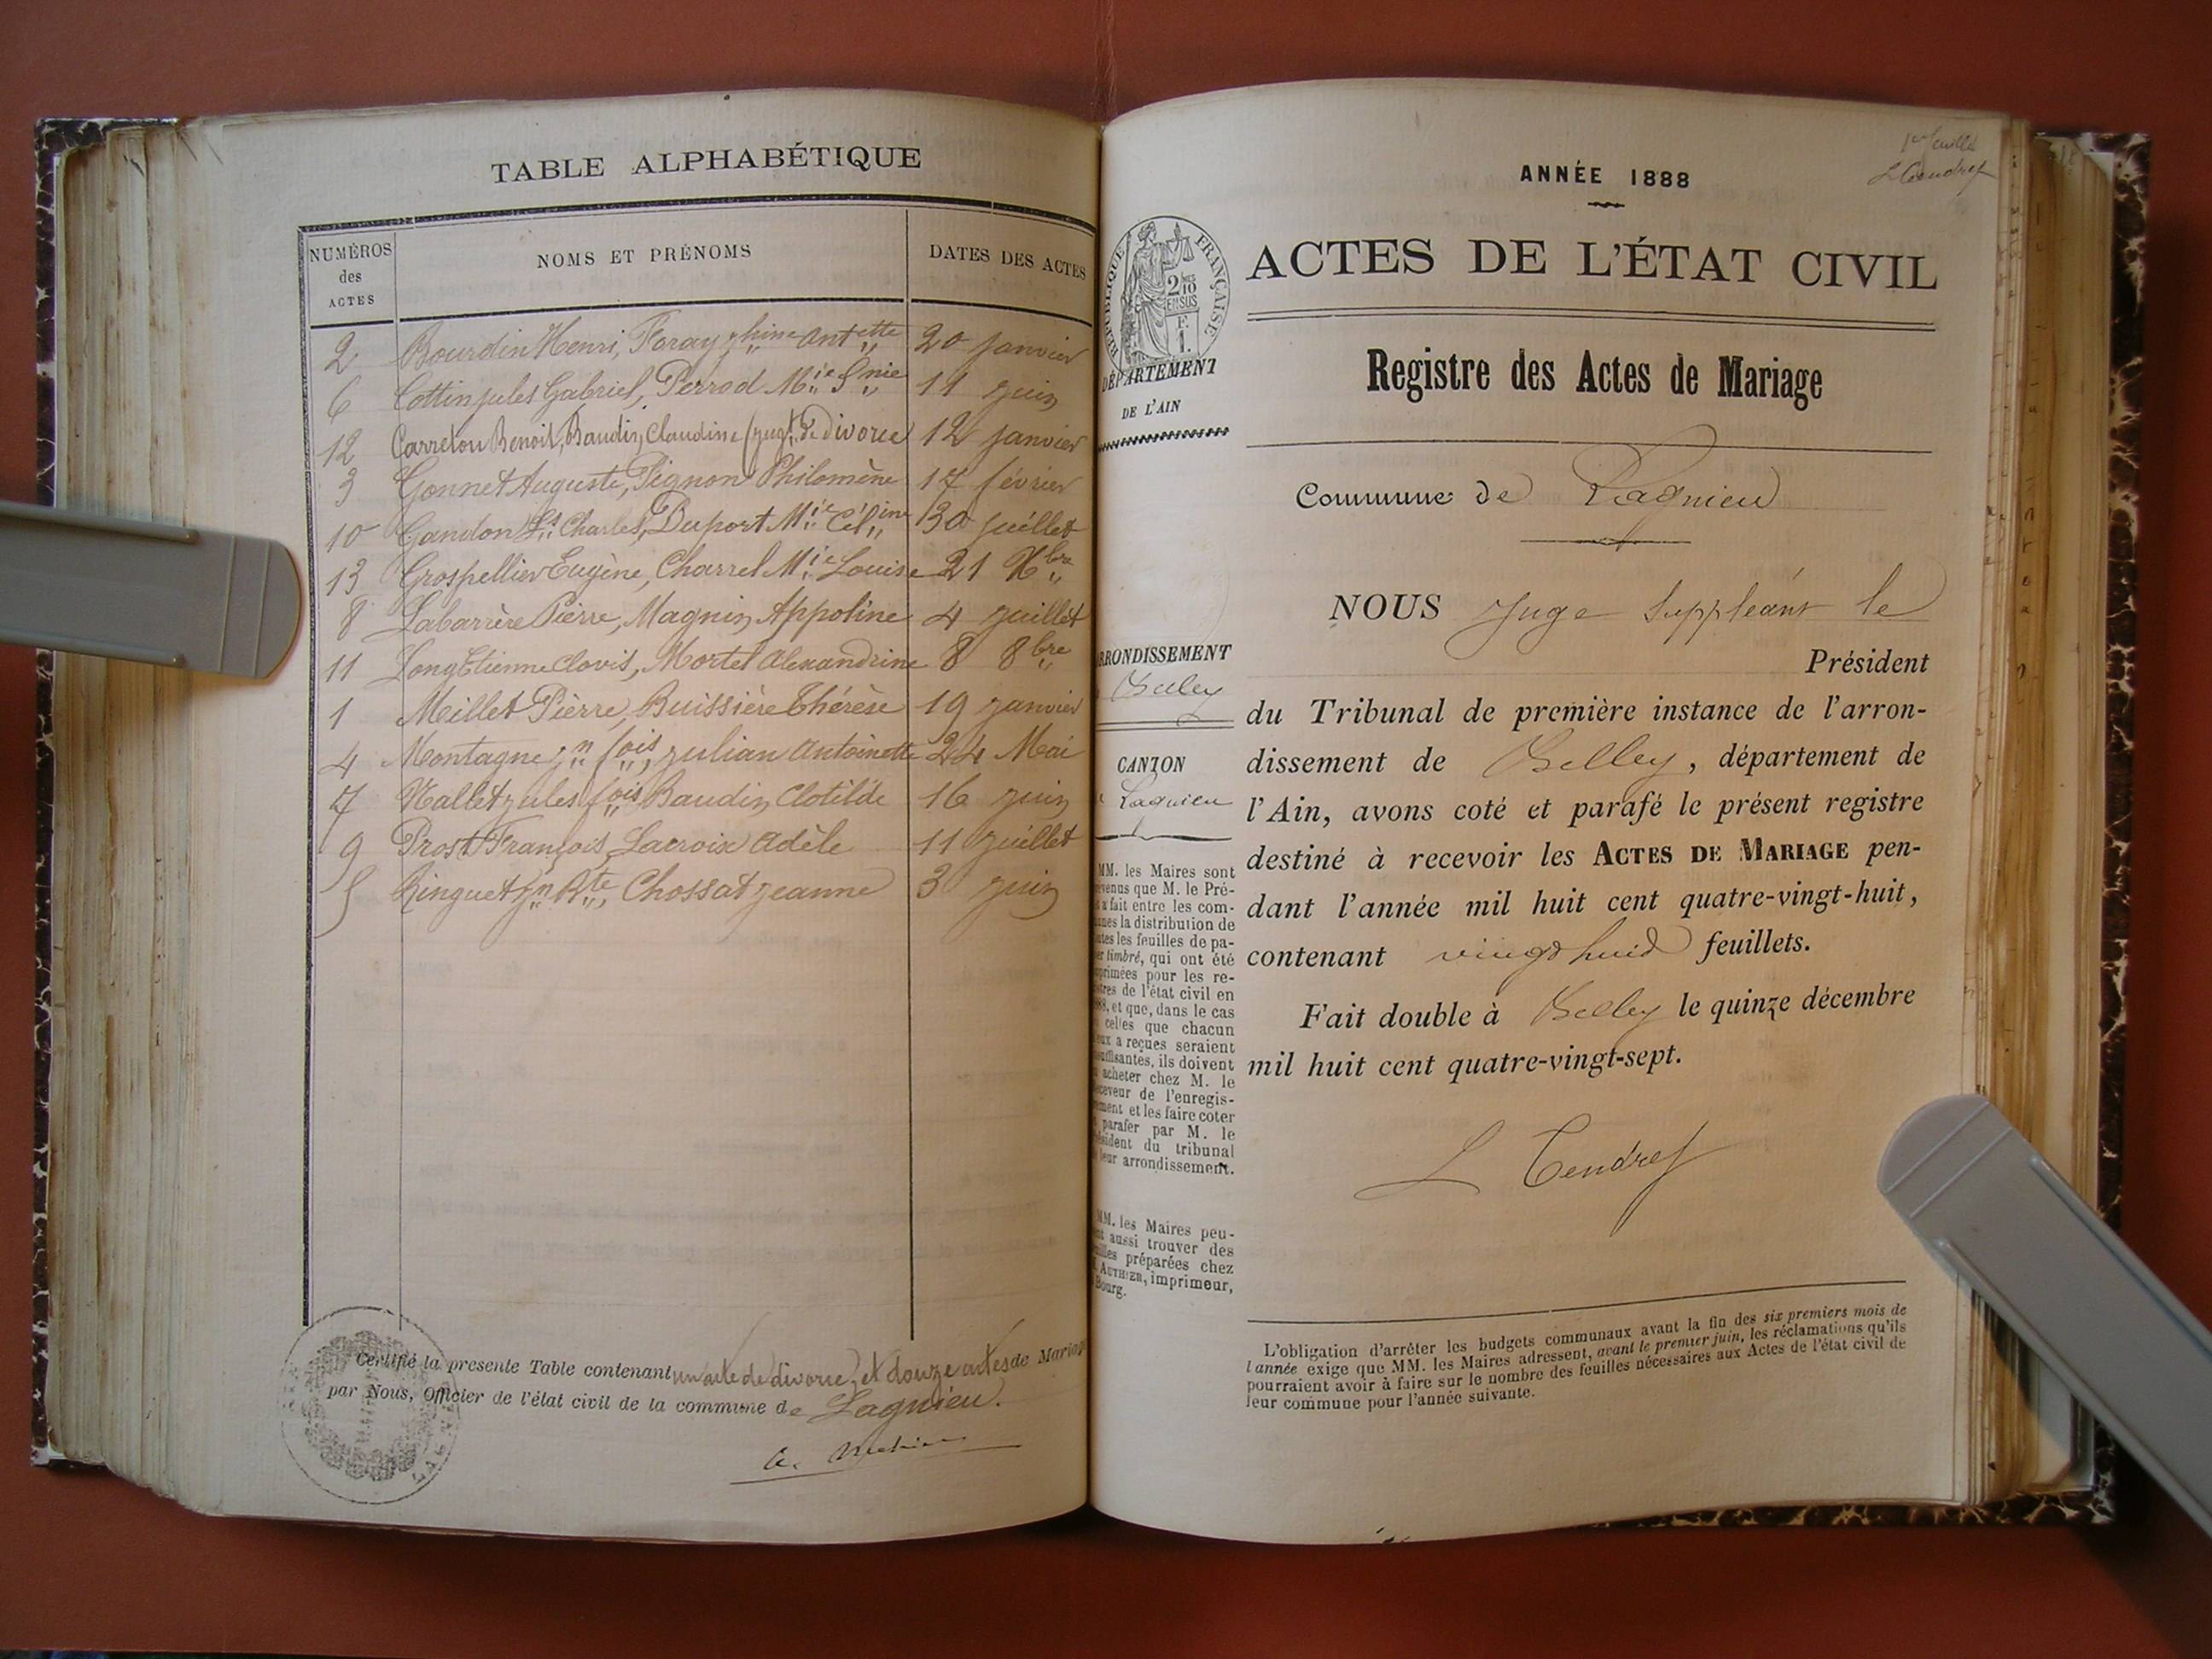 TABLE ALPHABÉTIQUE
NUMÉROS des ACTES NOMS ET PRÉNOMS DATES DES ACTES
2 Bourdin Henri, Foray phine Antette 20 janvier
6 Cottin jules Gabriel, Perrod Mie 11 juin
12 Carreton Benoit, Baudin Claudine (jugt de divorce 12 janvier
3 Gonnet Auguste, Pignon Philomène 17 février
10 Gandon Ls Charles, Duport Mie Céline 30 juillet
13 Grospellier Eugène, Charrel Mie Louise 21 Xbre
8 Labarrère Pierre, Magnin Appoline 4 juillet
11 Long Etienne Clovis, Mortel Alexandrine 8 8bre
1 Meillet Pierre, Buissière Thérèse 19 janvier
4 Montagne jn fois, julian Antoinette 24 Mai
7 Nallet jules fois Baudin Clotilde 16 juin
9 Prost François, Lacroix Adèle 11 juillet
5 Ringuet jn Bte, Chossat jeanne 3 juin
Certifié la présente Table contenant un acte de divorce, et douze actes de Mariage
par Nous, Officier de l'état civil de la commune de Lagnieu.
1er feuillet
L Tendret
ANNÉE 1888
RÉPUBLIQUE FRANÇAISE
2/10 EN SUS
F. 1.
ACTES DE L'ÉTAT CIVIL
DÉPARTEMENT
DE L'AIN
Registre des Actes de Mariage
Commune de Lagnieu
NOUS juge suppléant le
Président
du Tribunal de première instance de l'arron-
dissement de Belley, département de
l'Ain, avons coté et parafé le présent registre
destiné à recevoir les ACTES DE MARIAGE pen-
dant l'année mil huit cent quatre-vingt-huit,
contenant vingt huit feuillets.
Fait double à Belley le quinze décembre
mil huit cent quatre-vingt-sept.
L Tendret
ARRONDISSEMENT
Belley
CANTON
Lagnieu
MM. les Maires sont
prévenus que M. le Pré-
fet a fait entre les com-
munes la distribution de
toutes les feuilles de pa-
pier timbré, qui ont été
imprimées pour les re-
gistres de l'état civil en
1888, et que, dans le cas
où celles que chacun
d'eux a reçues seraient
insuffisantes, ils doivent
en acheter chez M. le
receveur de l'enregis-
trement et les faire coter
et parafer par M. le
président du tribunal
de leur arrondissement.
MM. les Maires peu-
vent aussi trouver des
feuilles préparées chez
M. AUTHIER, imprimeur,
Bourg.
L'obligation d'arrêter les budgets communaux avant la fin des six premiers mois de
l'année exige que MM. les Maires adressent, avant le premier juin, les réclamations qu'ils
pourraient avoir à faire sur le nombre des feuilles nécessaires aux Actes de l'état civil de
leur commune pour l'année suivante.